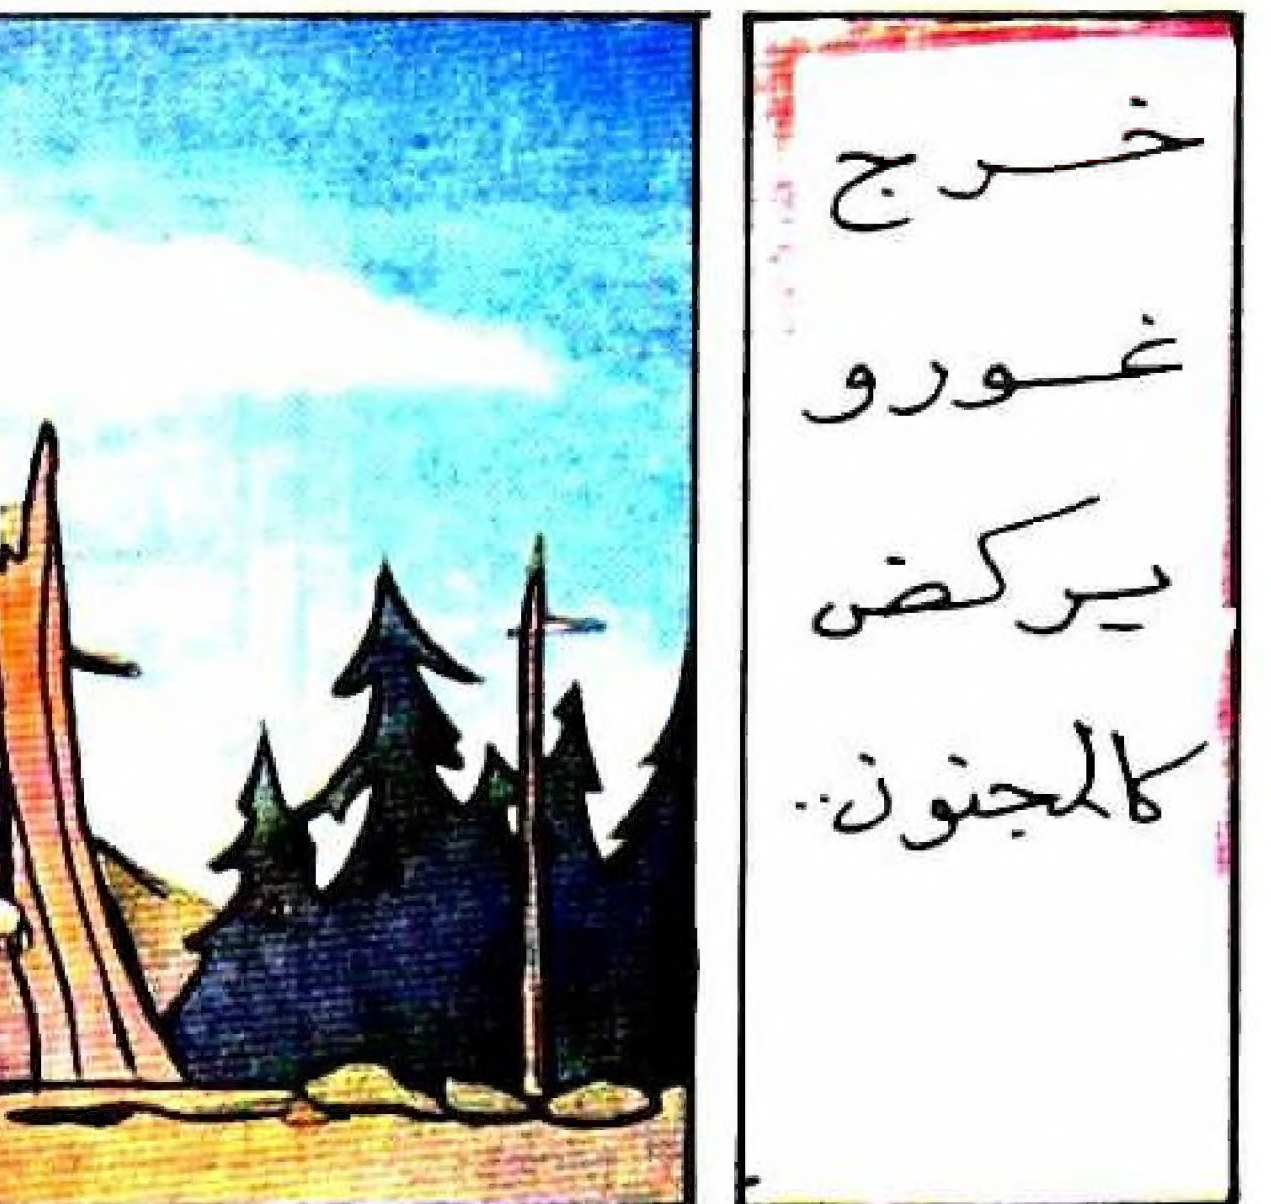 خرج
غورو
يركض
كالمجنون..